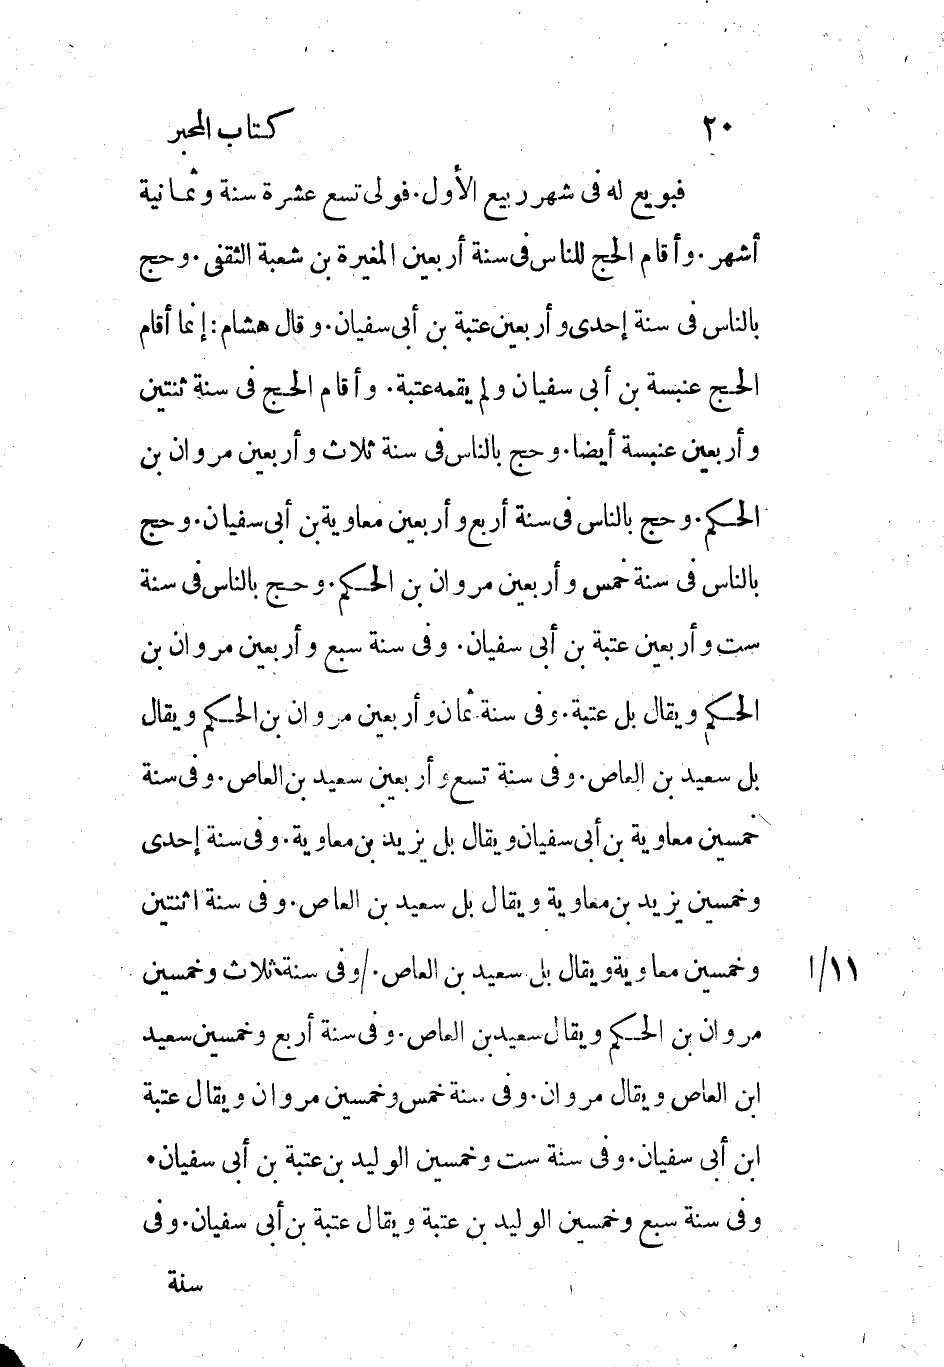 ٢٠ كتاب المحبر
فبويع له فى شهر ربيع الأول. فولى تسع عشرة سنة وثمانية
أشهر. وأقام الحج للناس فى سنة أربعين المغيرة بن شعبة الثقفى. وحج
بالناس فى سنة إحدى وأربعين عتبة بن أبى سفيان. وقال هشام: إنما أقام
الحج عنبسة بن أبى سفيان ولم يقمه عتبة. وأقام الحج فى سنة ثنتين
وأربعين عنبسة أيضا. وحج بالناس فى سنة ثلاث وأربعين مروان بن
الحكم. وحج بالناس فى سنة أربع وأربعين معاوية بن أبى سفيان. وحج
بالناس فى سنة خمس وأربعين مروان بن الحكم. وحج بالناس فى سنة
ست وأربعين عتبة بن أبى سفيان. وفى سنة سبع وأربعين مروان بن
الحكم ويقال بل عتبة. وفى سنة ثمان وأربعين مروان بن الحكم ويقال
بل سعيد بن العاص. وفى سنة تسع وأربعين سعيد بن العاص. وفى سنة
خمسين معاوية بن أبى سفيان ويقال بل يزيد بن معاوية. وفى سنة إحدى
وخمسين يزيد بن معاوية ويقال بل سعيد بن العاص. وفى سنة اثنتين
وخمسين معاوية ويقال بل سعيد بن العاص. / وفى سنة ثلاث وخمسين ١١/ا
مروان بن الحكم ويقال سعيد بن العاص. وفى سنة أربع وخمسين سعيد
ابن العاص ويقال مروان. وفى سنة خمس وخمسين مروان ويقال عتبة
ابن أبى سفيان. وفى سنة ست وخمسين الوليد بن عتبة بن أبى سفيان.
وفى سنة سبع وخمسين الوليد بن عتبة ويقال عتبة بن أبى سفيان. وفى
سنة